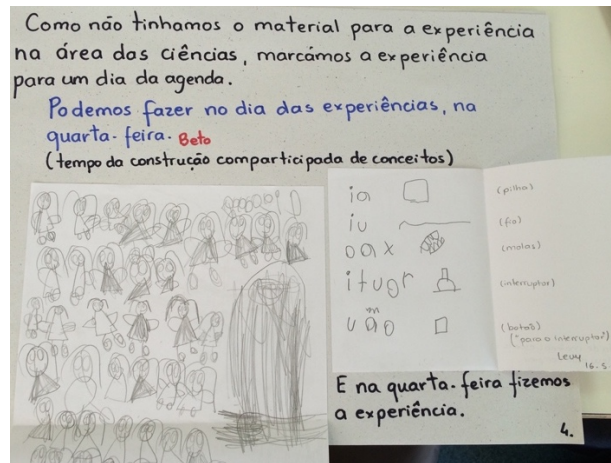 Como não tinhamos o material para a experiência
na área das ciências, marcámos a experiência
para um dia da agenda.
Podemos fazer no dia das experiências, na
quarta-feira. Beto
(tempo da construção comparticipada de conceitos)
ia
(pilha)
iu
(fio)
oax
(molas)
itugr
(interruptor)
m
uão
(botão)
("para o interruptor")
Levy
16-5
E na quarta-feira fizemos
a experiência.
4.